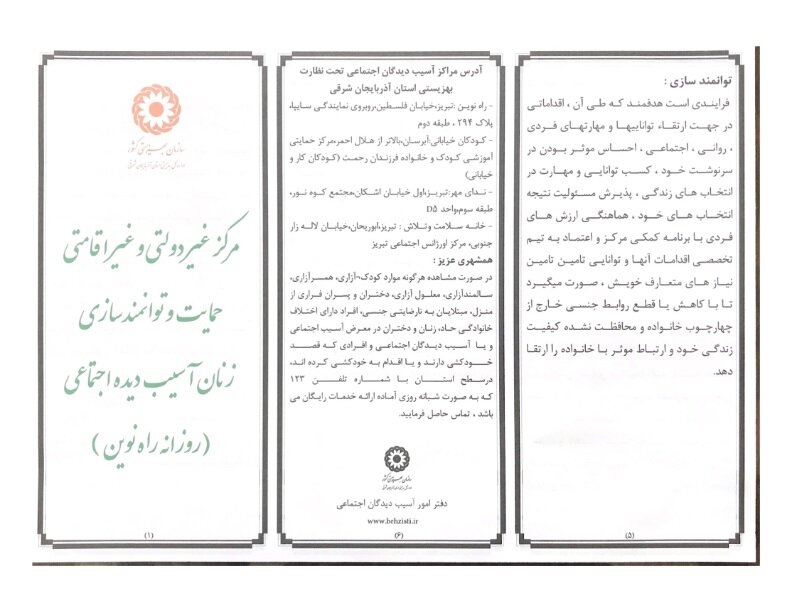 توانمند سازی :
فرایندی است هدفمند که طی آن ، اقداماتی
در جهت ارتقاء تواناییها و مهارتهای فردی
، روانی ، اجتماعی ، احساس موثر بودن در
سرنوشت خود ، کسب توانایی و مهارت در
انتخاب های زندگی ، پذیرش مسئولیت نتیجه
انتخاب های خود ، هماهنگی ارزش های
فردی با برنامه کمکی مرکز و اعتماد به تیم
تخصصی اقدامات آنها و توانایی تامین تامین
نیاز های متعارف خویش ، صورت میگیرد
تا با کاهش یا قطع روابط جنسی خارج از
چهارچوب خانواده و محافظت نشده کیفیت
زندگی خود و ارتباط موثر با خانواده را ارتقا
دهد.
(۵)
آدرس مراکز آسیب دیدگان اجتماعی تحت نظارت
بهزیستی استان آذربایجان شرقی
- راه نوین :تبریز،خیابان فلسطین،روبروی نمایندگی سایپا،
پلاک ۲۹۴ ، طبقه دوم
- کودکان خیابانی:آبرسان،بالاتر از هلال احمر،مرکز حمایتی
آموزشی کودک و خانواده فرزندان رحمت (کودکان کار و
خیابانی)
- ندای مهر:تبریز،اول خیابان اشکان،مجتمع کوه نور،
طبقه سوم،واحد D5
- خانه سلامت وتلاش : تبریز،ابوریحان،خیابان لاله زار
جنوبی، مرکز اورژانس اجتماعی تبریز
همشهری عزیز :
در صورت مشاهده هرگونه موارد کودک¬آزاری، همسرآزاری،
سالمندآزاری، معلول آزاری، دختران و پسران فراری از
منزل، مبتلایان به نارضایتی جنسی، افراد دارای اختلاف
خانوادگی حاد، زنان و دختران در معرض آسیب اجتماعی
و یا آسیب دیدگان اجتماعی و افرادی که قصد
خودکشی دارند و یا اقدام به خودکشی کرده اند،
درسطح استان با شماره تلفن ۱۲۳
که به صورت شبانه روزی آماده ارائه خدمات رایگان می
باشد ، تماس حاصل فرمایید.
سازمان بهزیستی کشور
دفتر امور آسیب دیدگان اجتماعی
www.behzisti.ir
(۶)
سازمان بهزیستی کشور
مرکز غیردولتی و غیراقامتی
حمایت و توانمندسازی
زنان آسیب دیده اجتماعی
(روزانه راه نوین )
(۱)